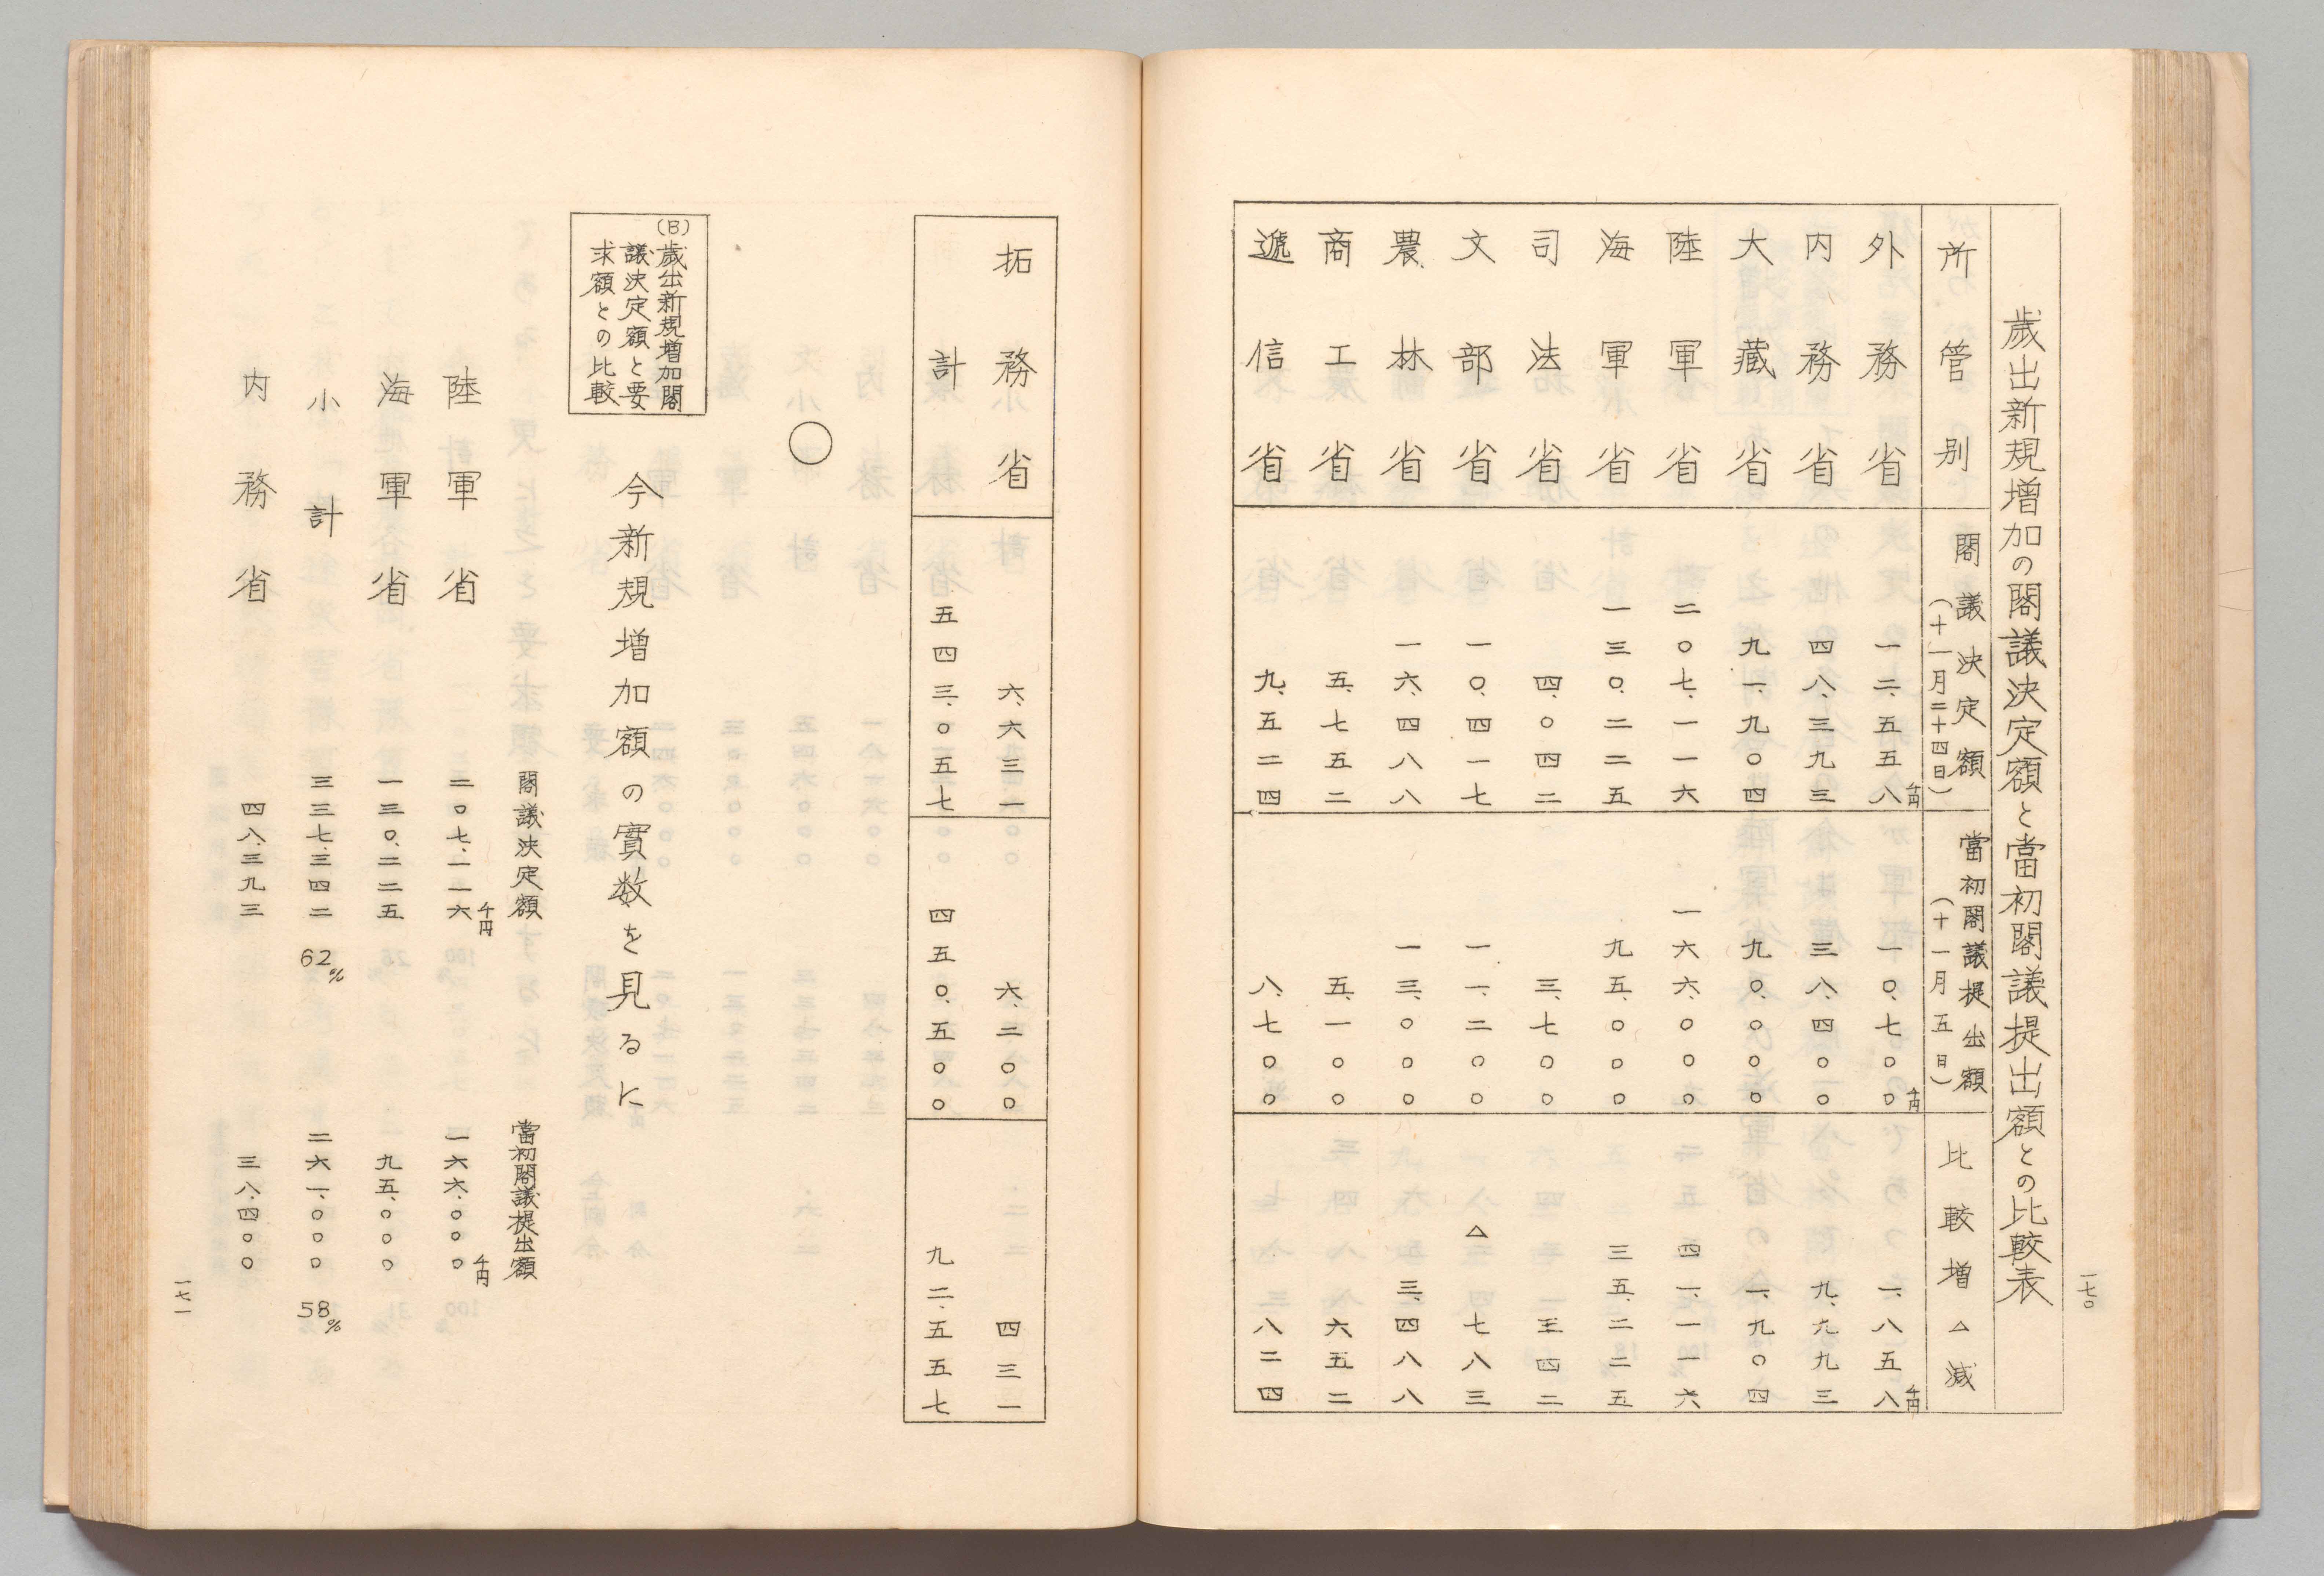 一七〇
歳出新規増加の閣議決定額と當初閣議提出額との比較表
所管別 閣議決定額(十一月二十四日) 當初閣議提出額(十一月五日) 比較増△減
外務省 一二、五五八千円 一〇、七〇〇千円 一、八五八千円
内務省 四八、三九三 三八、四〇〇 九、九九三
大藏省 九一、九〇四 九〇、〇〇〇 一、九〇四
陸軍省 二〇七、一一六 一六六、〇〇〇 四一、一一六
海軍省 一三〇、二二五 九五、〇〇〇 三五、二二五
司法省 四、〇四二 三、七〇〇 三四二
文部省 一〇、四一七 一一、二〇〇 △七八三
農林省 一六、四八八 一三、〇〇〇 三、四八八
商工省 五、七五二 五、一〇〇 六五二
遞信省 九、五二四 八、七〇〇 八二四
拓務省 六、六三一 六、二〇〇 四三一
計 五四三、〇五七 四五〇、五〇〇 九二、五五七
○
(B)歳出新規増加閣
議決定額と要
求額との比較
今新規増加額の實数を見るに
閣議決定額 當初閣議提出額
陸軍省 二〇七、一一六千円 一六六、〇〇〇千円
海軍省 一三〇、二二五 九五、〇〇〇
小計 三三七、三四二 62% 二六一、〇〇〇 58%
内務省 四八、三九三 三八、四〇〇
一七一